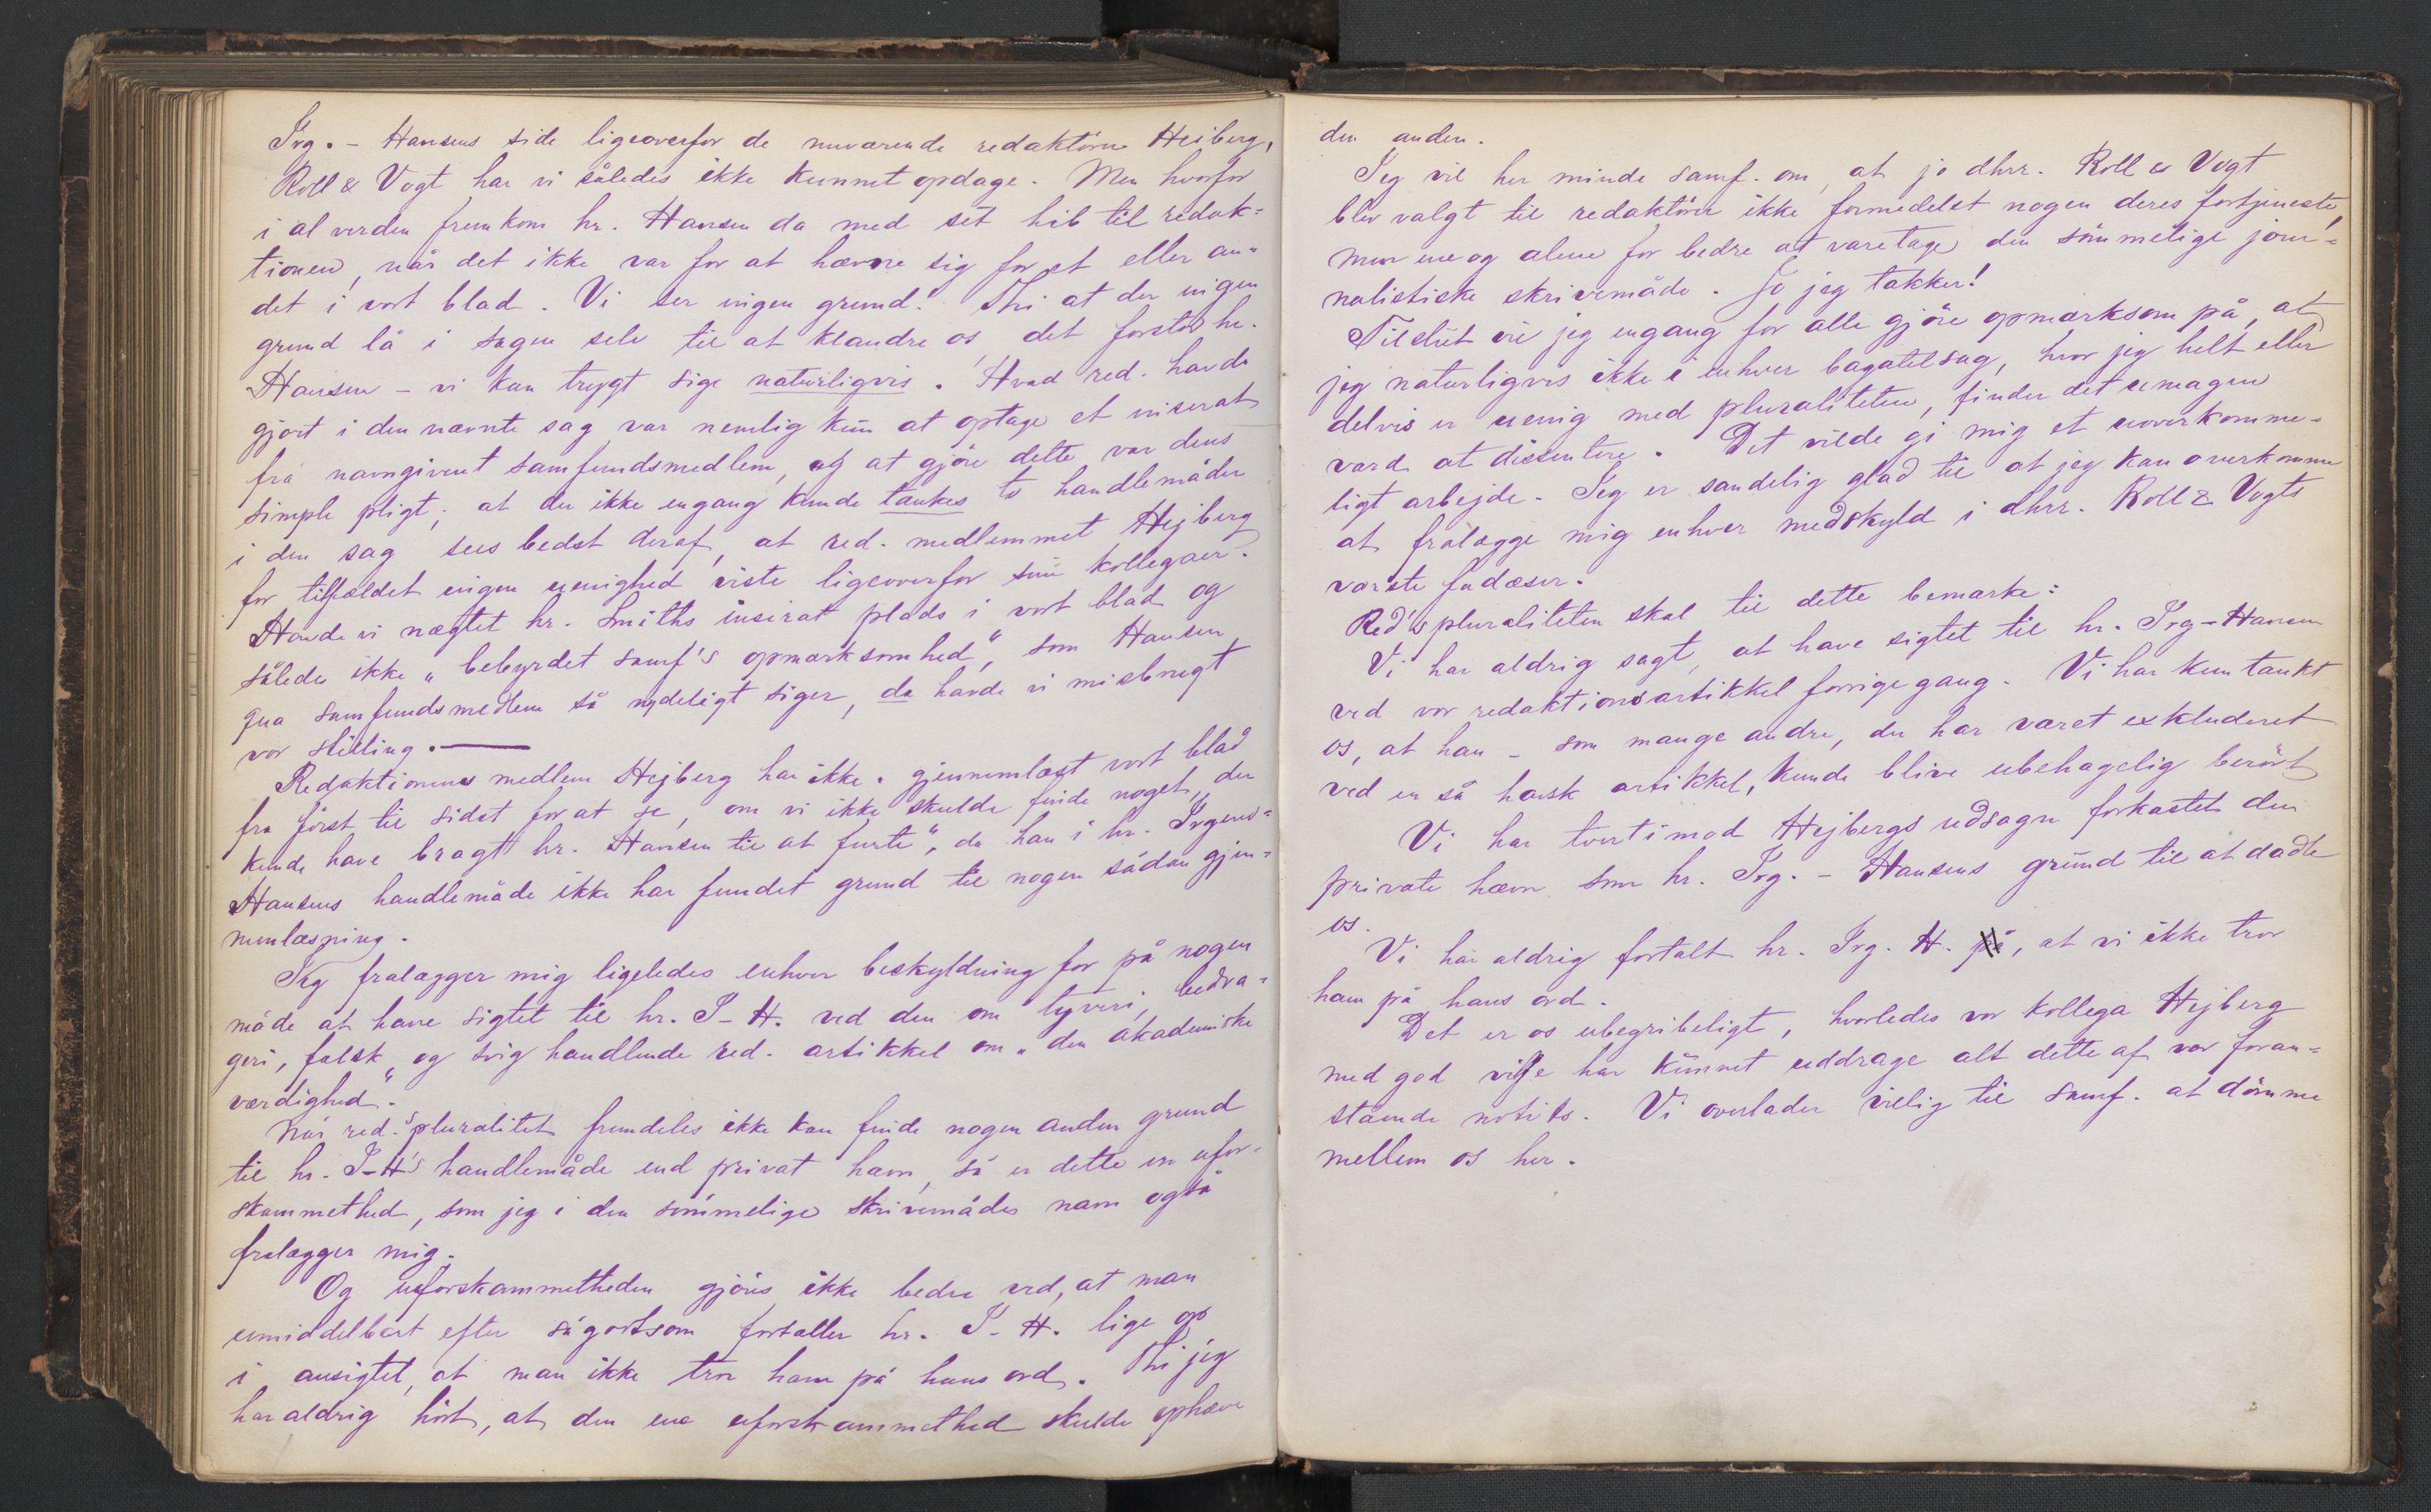 Irg. - Hansens side ligeoverfor de nuværende redaktörer Heiberg,
Roll & Vogt har vi således ikke kunnet opdage. Men hvorfor
i al verden fremkom hr. Hansen da med sét hib til redak=
tionen, når det ikke var for at hævne sig for et eller an=
det i vort blad. Vi ser ingen grund! Thi at der ingen
grund lå i sagen selv til at klandre os, det forstod hr.
Hansen - vi kan trygt sige naturligvis. Hvad red. havde
gjort i den nævnte sag var nemlig kun at optage et inserat
fra navngivent samfundsmedlem, og at gjöre dette var dens
simple pligt; at der ikke engang kunde tænkes to handlemåder
i den sag sees bedst deraf, at red. medlemmet Hejberg
for tilfældet ingen uenighed viste ligeoverfor sine kollegaer.
Havde vi nægtet hr. Smiths inserat plads i vort blad og
således ikke "bebyrdet samf's opmærksomhed", som Hansen
qua samfundsmedlem så nydeligt siger, da havde vi misbrugt
vor stilling. —
Redaktionens medlem Hejberg har ikke. gjennemlæst vort blad
fra först til sidst for at se, om vi ikke skulde finde noget, "der
kunde have bragt hr. Hansen til at furte", da han i hr. Irgens=
Hansens handlemåde ikke har fundet grund til nogen sådan gjen=
nemlæsning.
Jeg fralægger mig ligeledes enhver beskyldning for på nogen
måde at have sigtet til hr. I-H. ved den om tyveri, bedra=
geri, falsk og svig handlende red. artikkel om "den akademiske
værdighed".
Når red.'s pluralitet fremdeles ikke kan finde nogen anden grund
til hr. I-H's handlemåde end privat hævn, så er dette en ufor-
skammethed, som jeg i den sömmelige skrivemådes navn også
fralægger mig.
Og uforskammetheden gjöres ikke bedre ved, at man
umiddelbart efter sågodtsom fortæller hr. I-H. lige op
i ansigtet, at man ikke tror ham på hans ord. Thi jeg
har aldrig hört, at den ene uforskammethed skulde ophæve
den anden.
Jeg vil her minde samf. om, at jo dhrr. Roll & Vogt
blev valgt til redaktörer ikke formedelst nogen deres fortjeneste,
men ene og alene for bedre at varetage den sömmelige jour=
nalistiske skrivemåde. Jo jeg takker!
Tilslut vil jeg engang for alle gjöre opmærksom på, at
jeg naturligvis ikke i enhver bagatelsag, hvor jeg helt eller
delvis er uenig med pluraliteten, finder det umagen
værd at dissentere. Det vilde gi mig et uoverkomme=
ligt arbejde. Jeg er sandelig glad til at jeg kan overkomme
at fralægge mig enhver medskyld i dhrr. Roll & Vogts
værste fadæser.
Red's pluraliteten skal til dette bemærke:
Vi har aldrig sagt, at have sigtet til hr. Irg-Hansen
ved vor redaktionsartikkel forrige gang. Vi har kun tænkt
os, at han - som mange andre, der har været exkluderet
ved en så harsk artikkel, kunde blive ubehagelig berört
Vi har tvertimod Hejbergs udsagn forkastet den
private hævn som hr. Irg. - Hansens grund til at dadle
os.
Vi har aldrig fortalt hr. Irg. H. på, at vi ikke tror
ham på hans ord.
Det er os ubegribeligt, hvorledes vor kollega Hejberg
med god vilje har kunnet uddrage alt dette af vor foran=
stående notits. Vi overlader villig til samf. at dömme
mellem os her.